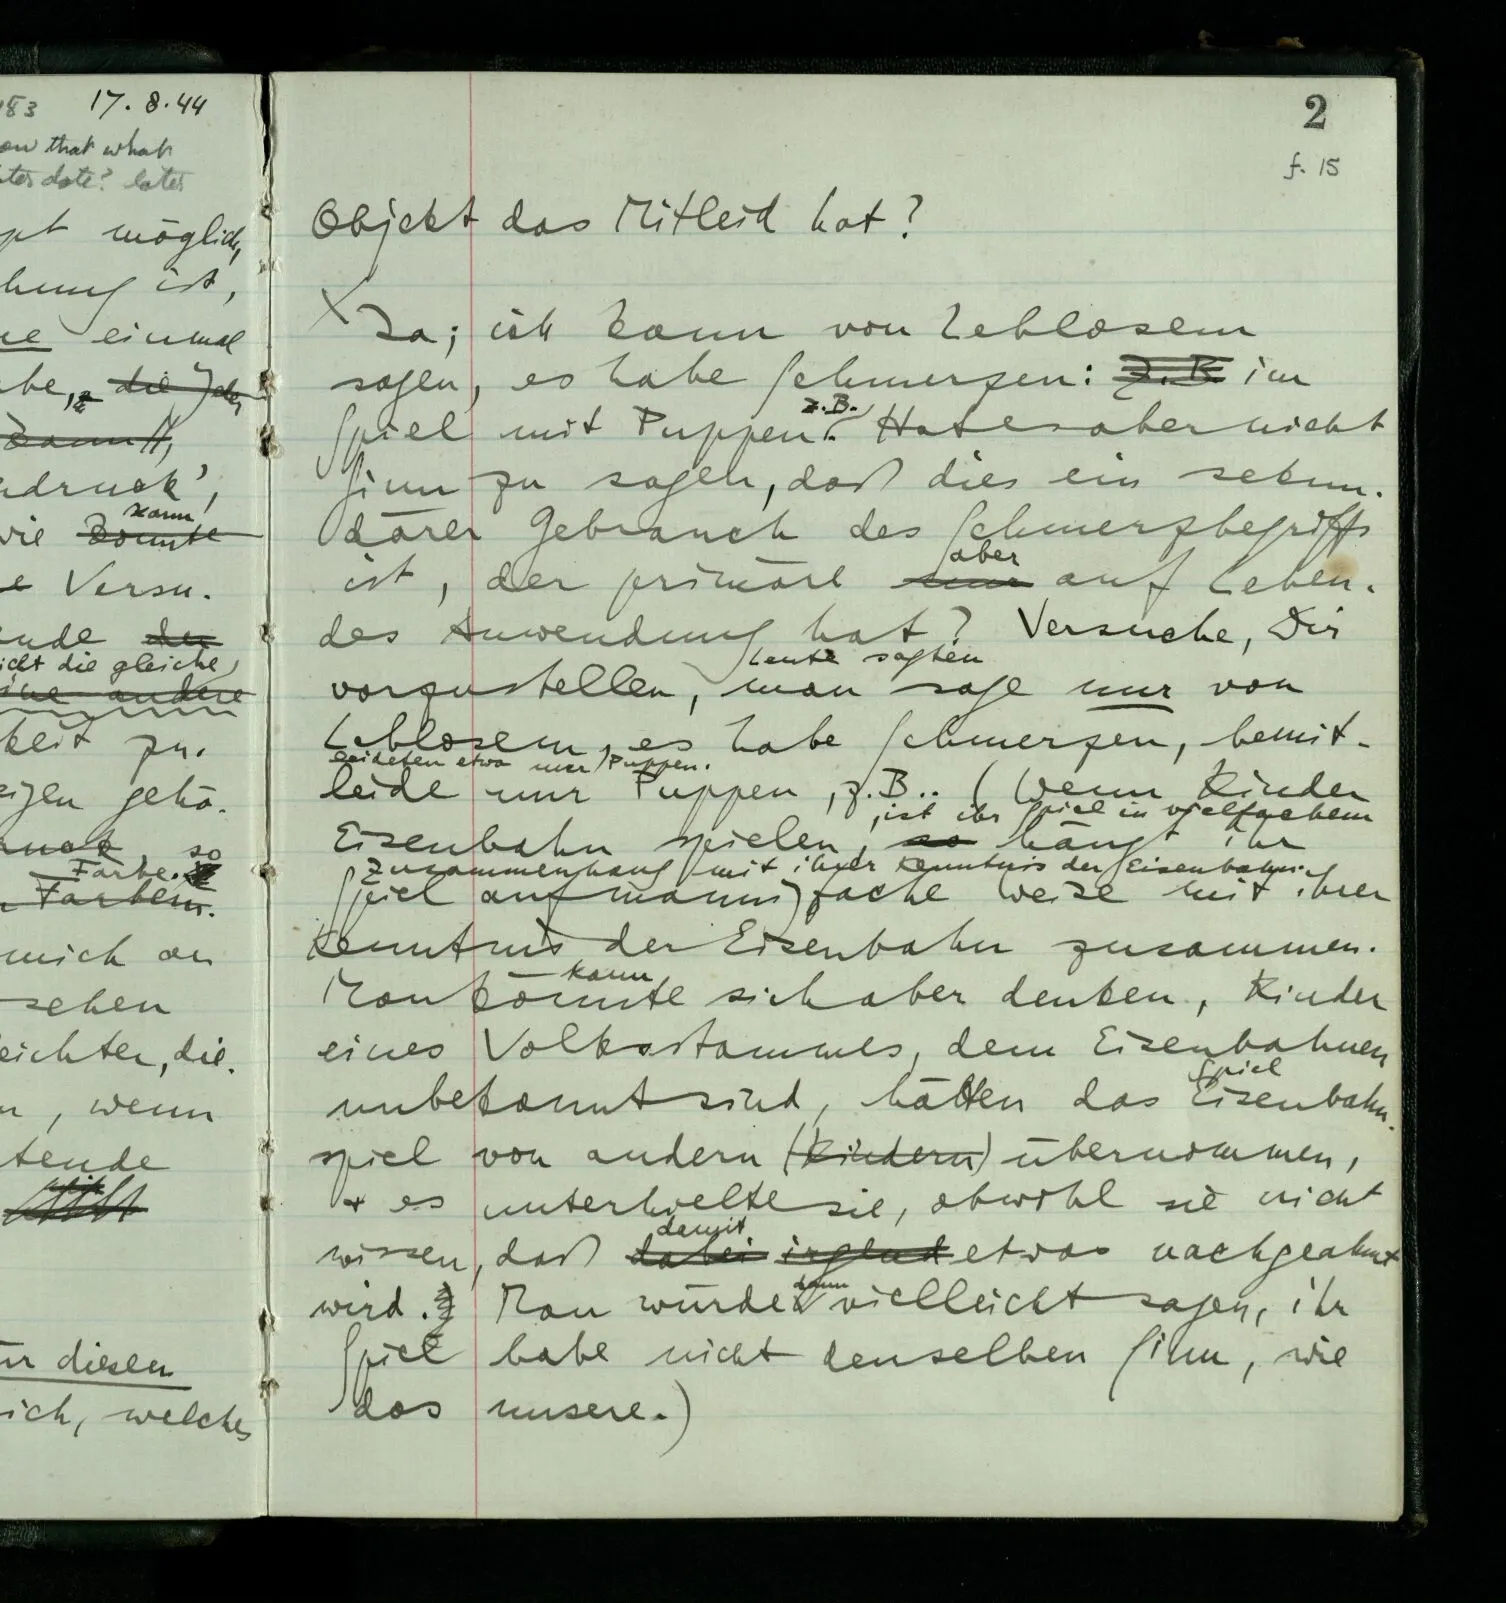 183 17. 8. 44
that what
date? later
möglich,
hung ist,
einmal
die
druck',
kann
wie konnte
Versu-
ende der
icht die gleiche
ine andere
keit zu.
gehö-
so
Farbe.
Farben.
mich an
sehen
eichter, die
n, wenn
tende
ür diesen
ich, welches
2
f. 15
Objekt das Mitleid hat?
Ja; ich kann von Leblosem
sagen, es habe Schmerzen: z.B. im
z.B.
Spiel mit Puppen. Hat es aber nicht
Sinn zu sagen, daß dies ein sekun-
därer Gebrauch des Schmerzbegriffs
aber
ist, der primäre nur auf Leben-
des Anwendung hat? Versuche, Dir
Leute sagten
vorzustellen, man sage nur von
Leblosem, es habe Schmerzen, bemit-
leideten etwa nur Puppen.
leide nur Puppen, z.B.. (Wenn Kinder
, ist ihr Spiel in vielfachem
Eisenbahn spielen, so hängt ihr
Zusammenhang mit ihrer Kenntnis der Eisenbahn.
Spiel auf mannigfache Weise mit ihrer
Kenntnis der Eisenbahn zusammen.
kann
Man könnte sich aber denken, Kinder
eines Volksstammes, dem Eisenbahnen
Spiel
unbekannt sind, hätten das Eisenbahn-
spiel von andern (Kindern) übernommen,
+ es unterhielte sie, obwohl sie nicht
damit
wissen, daß dabei irgend etwas nachgeahmt
dann
wird. Man würde vielleicht sagen, ihr
Spiel habe nicht denselben Sinn, wie
das unsere.)